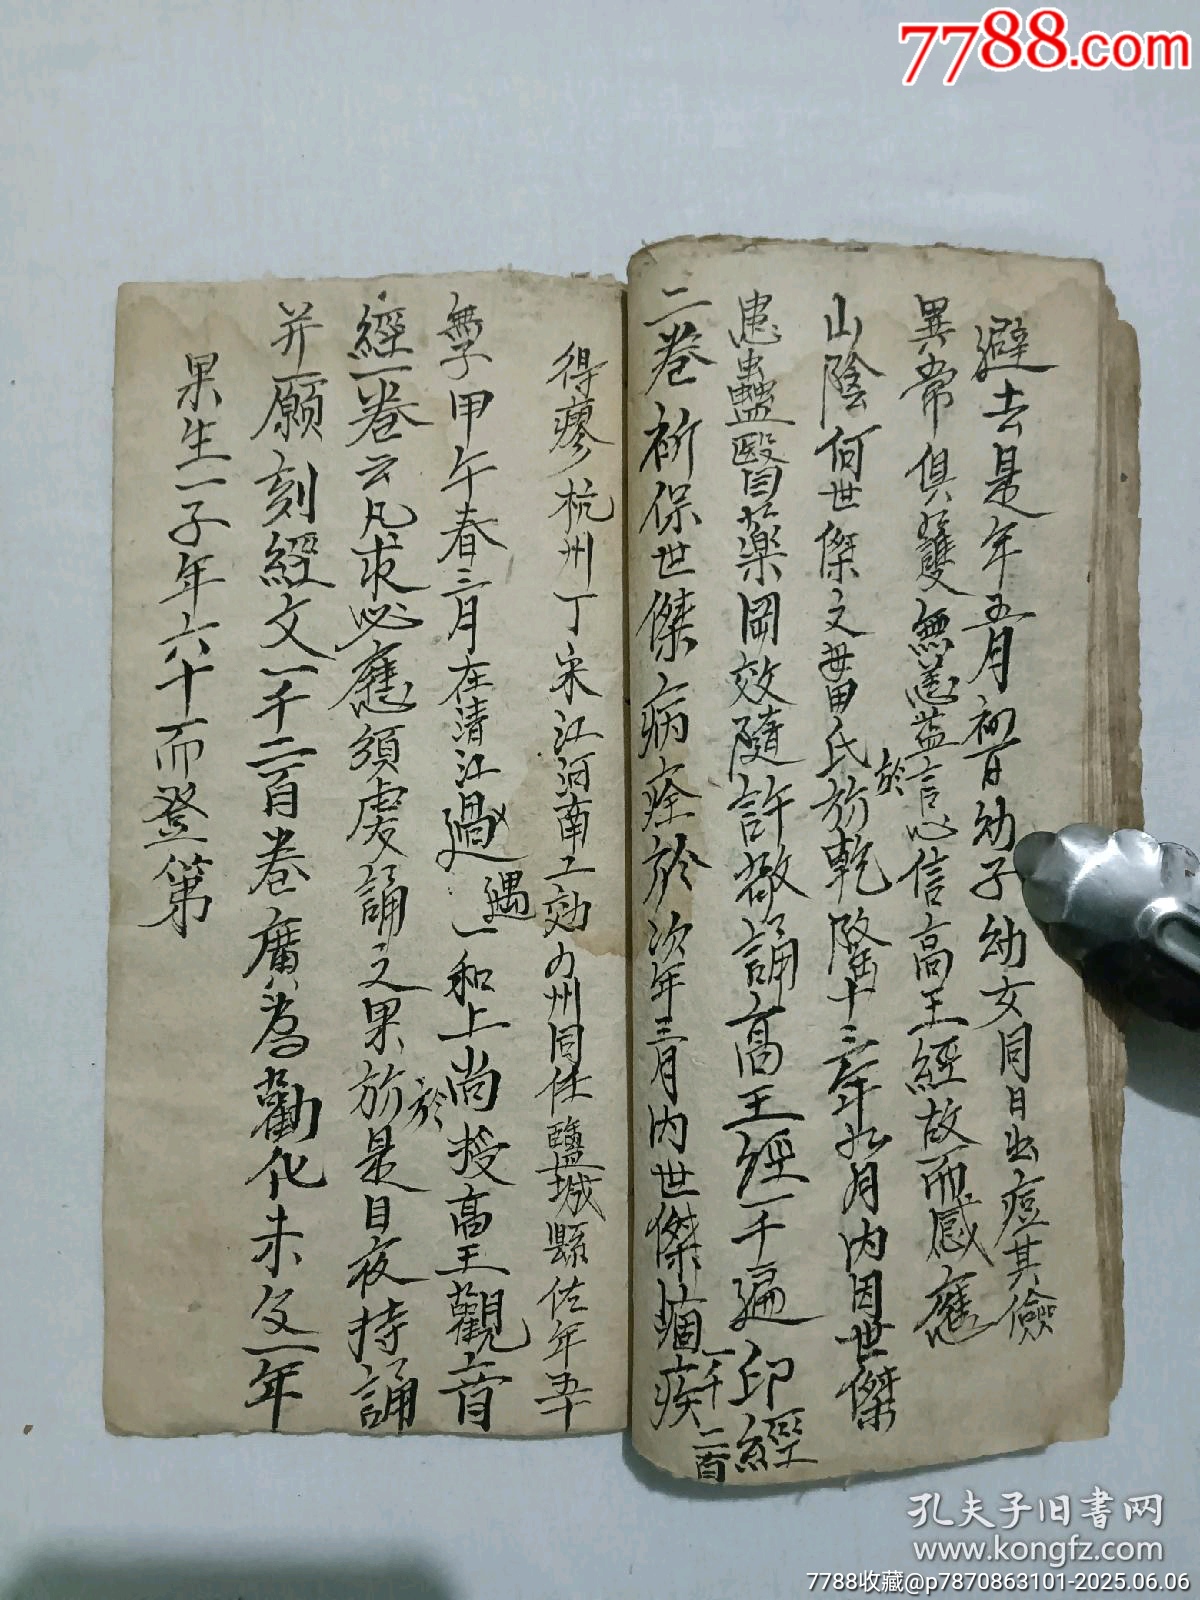 7788.com
避去是年五月初一日幼子幼女同日出痘其險
異常俱獲無恙益言心信高王經故而感應
山陰何世傑之母田氏於乾隆十三年九月內因世傑
於
患蠱醫目藥罔效隨許敬誦高王經一千遍印經
一千二百
二卷祈保世傑病痊於次年三月內世傑痼疾
得瘳杭州丁宋江河南工効力州同任鹽城縣佐年五十
無子甲午春三月在清江過一和上尚授高王觀音
遇
經一卷云凡求必應須虔誦之果於是日夜持誦
於
并願刻經文一千二百卷廣為勸化未及一年
果生一子年六十而登第
孔夫子旧书网
www.kongfz.com
7788收藏@p7870863101-2025.06.06